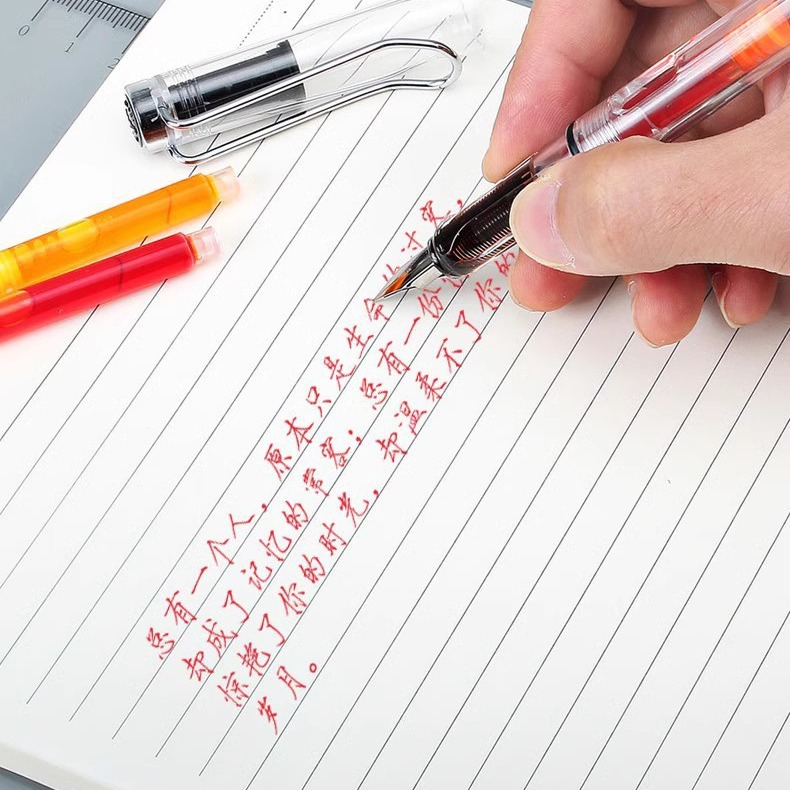 总有一个人，原本只是生命的过客，
却成了记忆的常客；总有一份
惊艳了你的时光，却温柔不了你的
岁月。
0 1 2